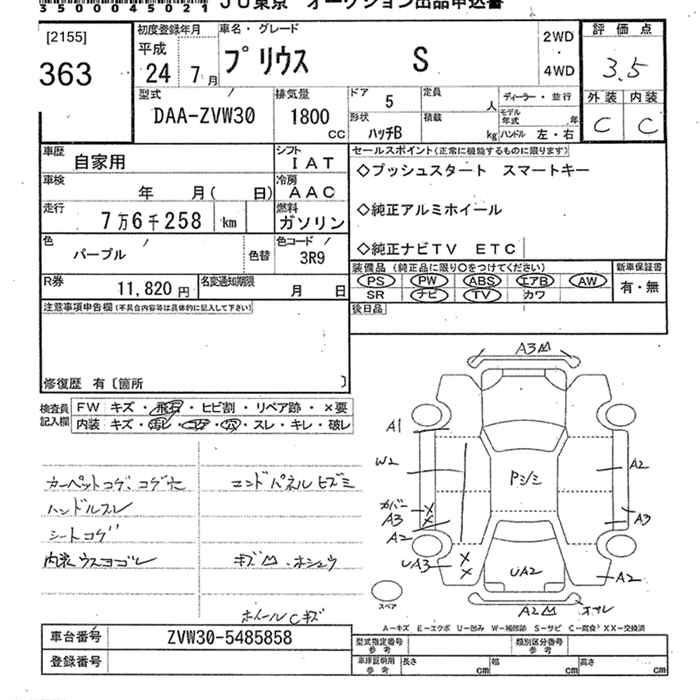 350045021 JU東京 オークション出品申込書
[2155]
363
初度登録年月
平成
24 7月
車名・グレード
プリウス S
2WD
・
4WD
評価点
3.5
外装 内装
C C
型式
DAA-ZVW30
排気量
1800
cc
ドア 5
形状 ハッチB
定員 人
積載 kg
ディーラー・並行
モデル年式 年
ハンドル 左・右
車歴
自家用
シフト
IAT
車検
年 月( 日)
冷房
AAC
走行
7万6千258 km
燃料
ガソリン
色
パープル
色替
色コード
3R9
R券
11,820円
名変通知期限
月 日
セールスポイント(正常に機能するものに限ります)
◇プッシュスタート スマートキー
◇純正アルミホイール
◇純正ナビTV ETC
装備品 (純正品に限り○をつけてください)
PS PW ABS エアB AW
SR ナビ TV カワ
新車保証書
有・無
後日品
注意事項申告欄(不具合内容等は具体的に記入して下さい)
修復歴 有〔箇所 〕
検査員
記入欄
FW キズ・飛石・ヒビ割・リペア跡・×要
内装 キズ・汚レ・コゲ・穴・スレ・キレ・破レ
カーペットコゲ、コゲ穴
ハンドルスレ
シートコゲ
内装ウスヨゴレ
エンドパネルヒズミ
キズ凹・ホシュウ
ホイールCキズ
A3凹
A1
W2
カバー
A3
A2
UA3
Pシミ
A2
A3
A2
UA2
A2凹
スペア
A-キズ E-エクボ U-凹み W-補修跡 S-サビ C-腐食 XX-交換済
車台番号
ZVW30-5485858
登録番号
型式指定番号
参考
類別区分番号
参考
車庫証明用
参考
長さ cm
幅 cm
高さ cm